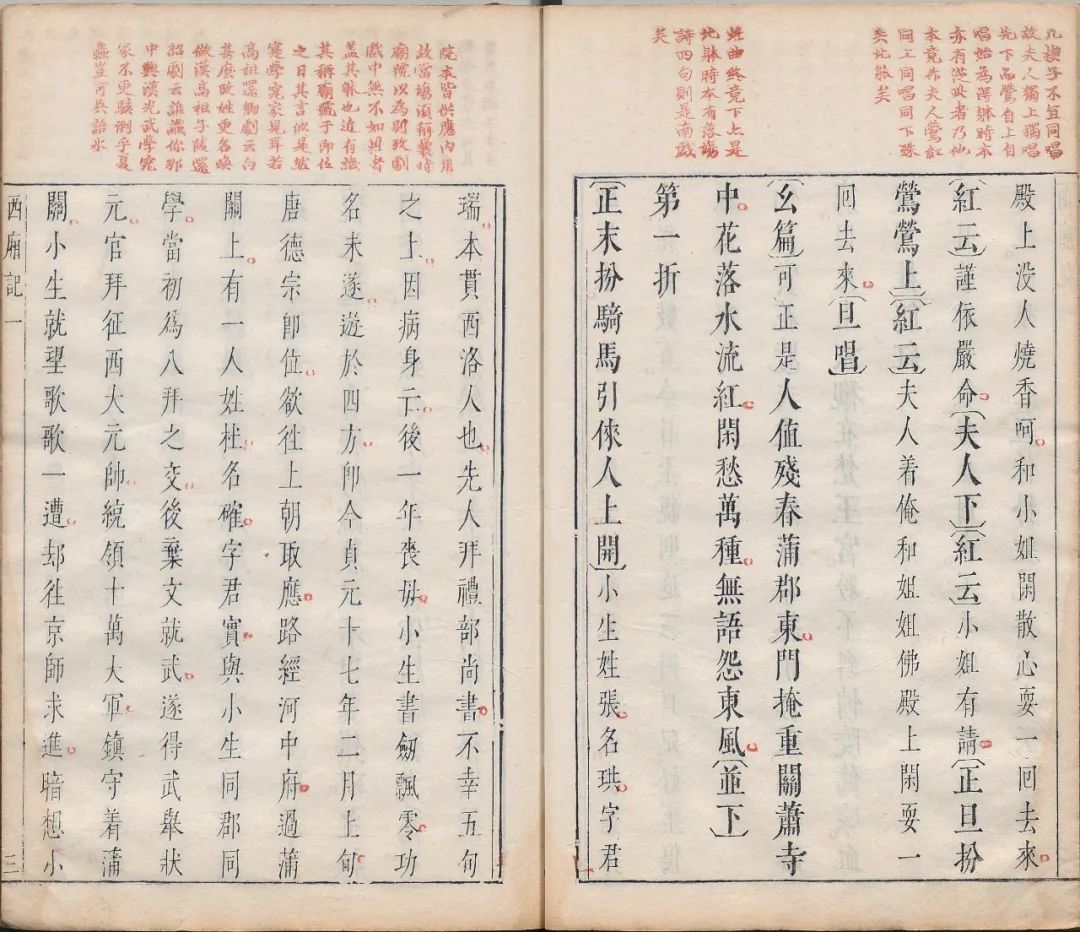 凡楔子不宜同唱
故夫人獨上獨唱
先下而鶯自上自
唱始為得躰時本
亦有從此者乃他
本竟作夫人鶯紅
同上同唱同下殊
失北躰矣
殿上没人燒香呵和小姐閑散心耍一囘去來
紅云謹依嚴命夫人下紅云小姐有請正旦扮
鶯鶯上紅云夫人着俺和姐姐佛殿上閑耍一
囘去來旦唱
姓曲終竟下亦是
北躰時本有落場
詩四句則是南戲
矣
幺篇可正是人值殘春蒲郡東門掩重關蕭寺
中花落水流紅閑愁萬種無語怨東風並下
第一折
正末扮騎馬引倈人上開小生姓張名珙字君
院本皆供應內用
故當場須稱纍時
廟號以為别攷劇
戲中無不如是者
蓋其躰也近有疑
其稱廟號于即位
之日其言似是然
寔學究家見耳若
高祖還鄉劇云白
甚麽改姓更名喚
做漢高祖子陵還
詔劇云誰識你那
中興漢光武學究
家不更駭倒乎夏
蟲豈可與語氷
瑞本貫西洛人也先人拜禮部尚書不幸五旬
之上因病身亡後一年喪母小生書劒飄零功
名未遂遊於四方即今貞元十七年二月上旬
唐德宗即位欲徃上朝取應路經河中府過蒲
關上有一人姓杜名確字君實與小生同郡同
學當初爲八拜之交後棄文就武遂得武舉狀
元官拜征西大元帥統領十萬大軍鎮守着蒲
關小生就望歌歌一遭却徃京師求進暗想小
西廂記一 三